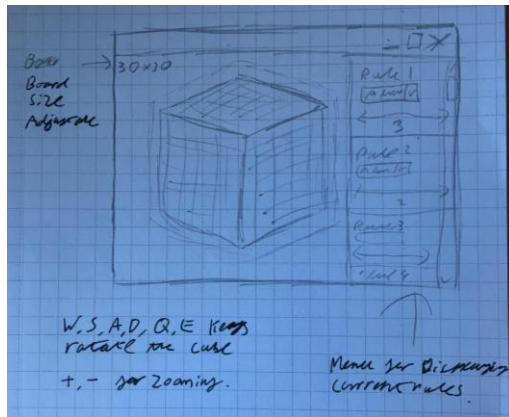 Board
Size
Adjustable
30x30
Rule 1
3
Rule 2
2
Rule 3
W, S, A, D, Q, E keys
rotate the cube
+, - for zooming.
Menu for
current rules.